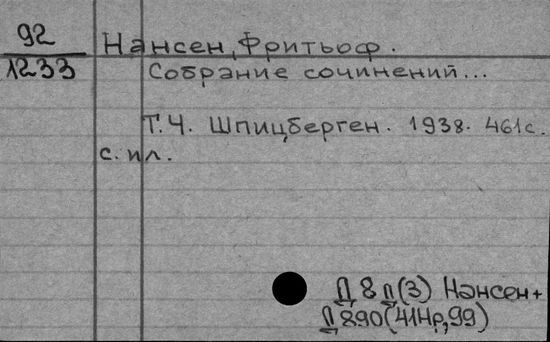 92
1233
Нансен, Фритьоф.
Собрание сочинений...
Т.4. Шпицберген. 1938. 461с.
с. ил.
Д 8 п(3) Нансен+
П890(41Нр,99)